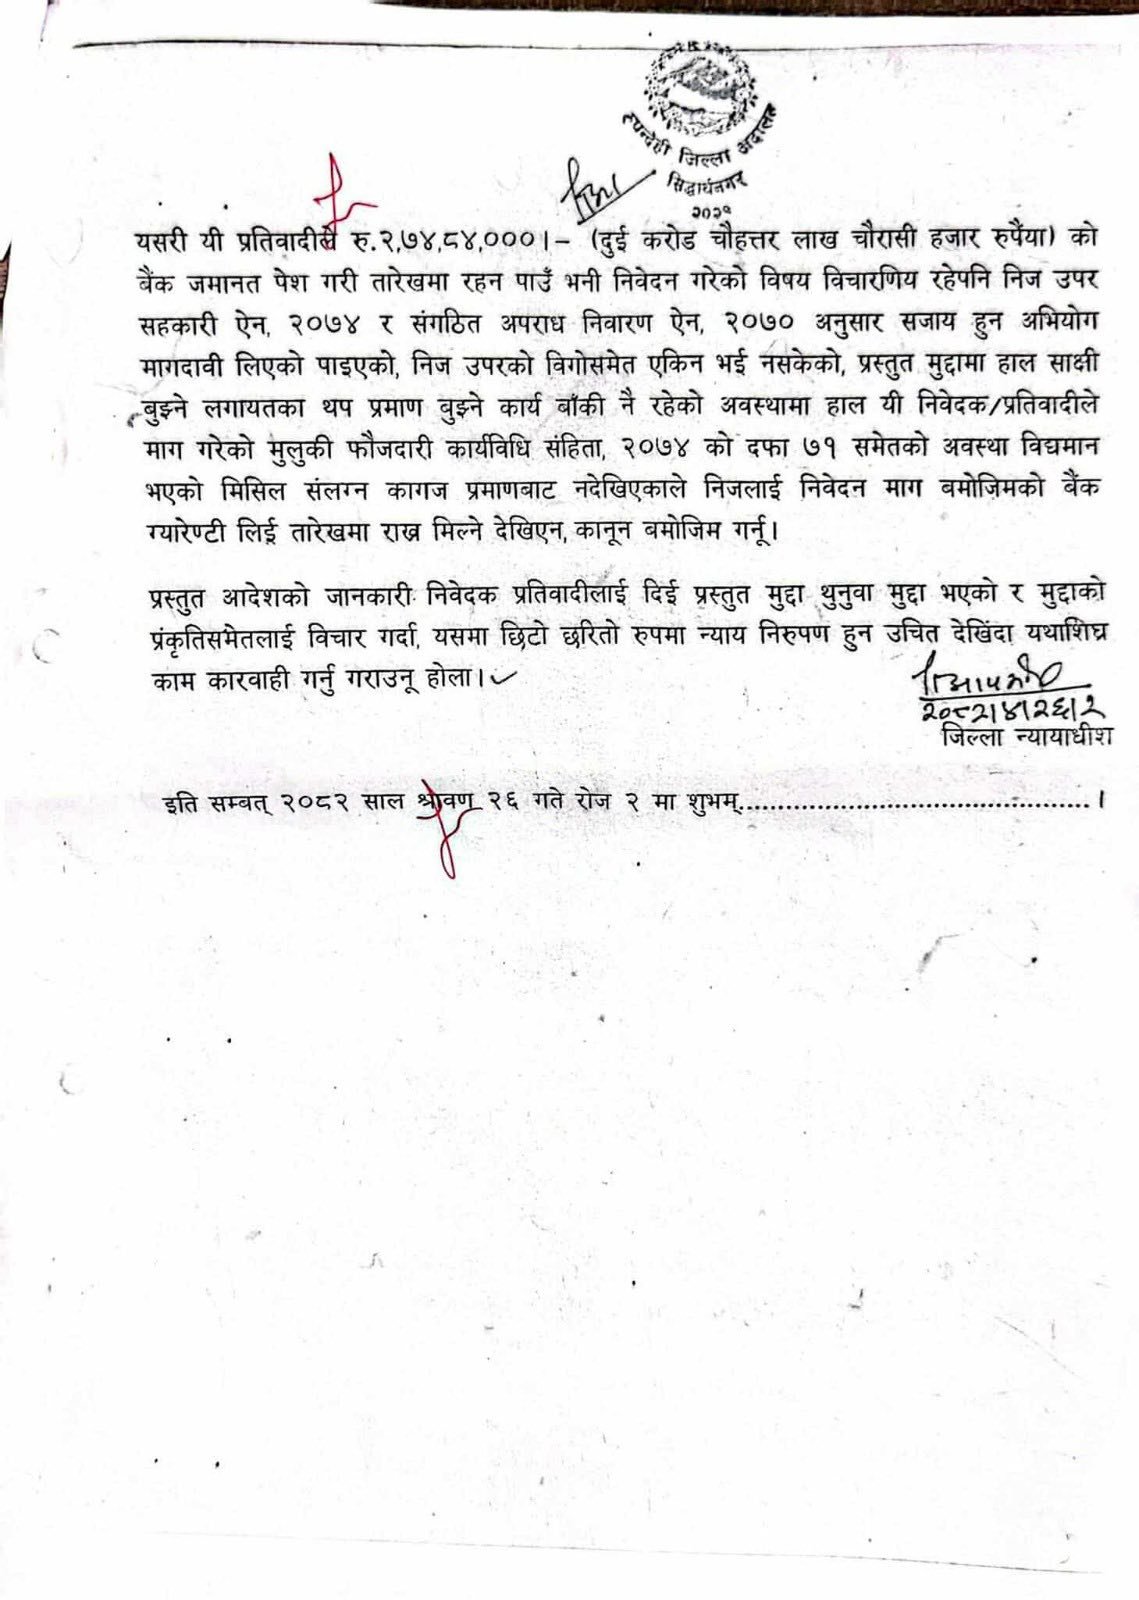 रुपन्देही जिल्ला अदालत
सिद्धार्थनगर
यसरी यी प्रतिवादीले रु.२,७४,८४,०००।- (दुई करोड चौहत्तर लाख चौरासी हजार रुपैंया) को
बैंक जमानत पेश गरी तारेखमा रहन पाउँ भनी निवेदन गरेको विषय विचारणिय रहेपनि निज उपर
सहकारी ऐन, २०७४ र संगठित अपराध निवारण ऐन, २०७० अनुसार सजाय हुन अभियोग
मागदावी लिएको पाइएको, निज उपरको विगोसमेत एकिन भई नसकेको, प्रस्तुत मुद्दामा हाल साक्षी
बुझ्ने लगायतका थप प्रमाण बुझ्ने कार्य बाँकी नै रहेको अवस्थामा हाल यी निवेदक/प्रतिवादीले
माग गरेको मुलुकी फौजदारी कार्यविधि संहिता, २०७४ को दफा ७१ समेतको अवस्था विद्यमान
भएको मिसिल संलग्न कागज प्रमाणबाट नदेखिएकाले निजलाई निवेदन माग बमोजिमको बैंक
ग्यारेण्टी लिई तारेखमा राख्न मिल्ने देखिएन, कानून बमोजिम गर्नू।
प्रस्तुत आदेशको जानकारी निवेदक प्रतिवादीलाई दिई प्रस्तुत मुद्दा थुनुवा मुद्दा भएको र मुद्दाको
प्रंकृतिसमेतलाई विचार गर्दा, यसमा छिटो छरितो रुपमा न्याय निरुपण हुन उचित देखिंदा यथाशिघ्र
काम कारवाही गर्नु गराउनू होला।
२०८२।४।२६।२
जिल्ला न्यायाधीश
इति सम्बत् २०८२ साल श्रावण २६ गते रोज २ मा शुभम्............................................।